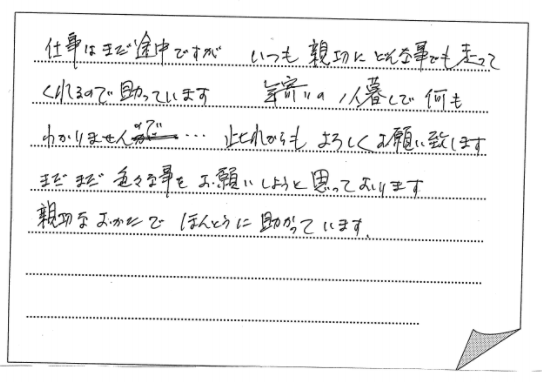 仕事はまだ途中ですが いつも親切にどんな事でも走って
くれるので助っています 年寄りの1人暮しで何も
わかりませんので… これからもよろしくお願い致します
まだまだ色々な事をお願いしようと思っております
親切なおかたでほんとうに助かっています。